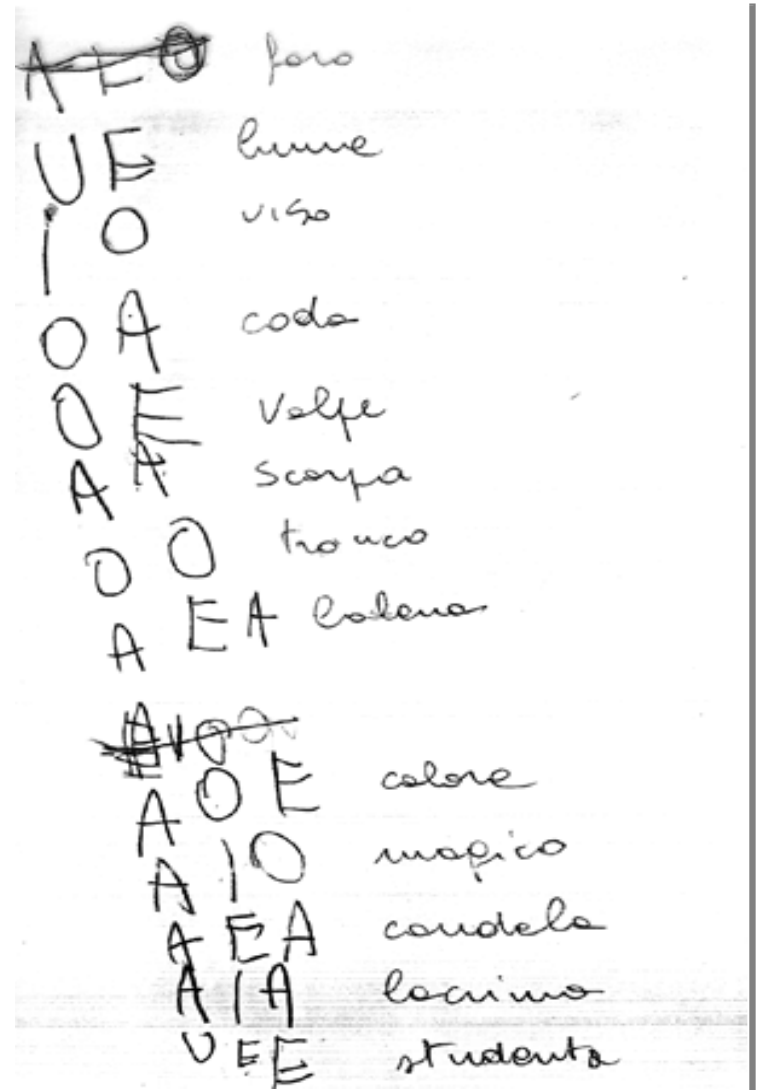 A E O faro
U E lume
i O viso
O A coda
O E Volpe
A A scarpa
O O tronco
A E A balena
A O E colore
A I O magico
A E A candela
A I A lacrima
U E E studente